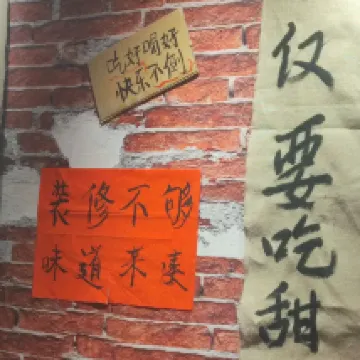 吃好喝好
快乐不倒
装修不够
味道来凑
仅要吃甜